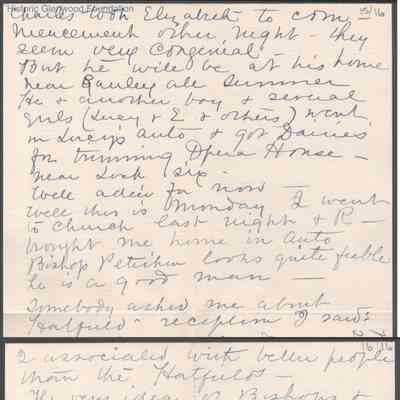 Historic Glenwood Foundation
15/16
Charles took Elizabeth to com
mencement other night - they
seem very Congenial -
But he will be at his home
near Gauley all Summer
He & another boy & several
girls (Lucy & E & others) went
in Lucy's auto & got Daisies
for trimming Opera House -
near Lock Six -
Well adieu for now -
Well this is Monday I went
to Church last night & R -
brought me home in auto
Bishop Peterkin looks quite feeble
he is a good man -
Somebody asked me about
Hatfield - reception I said:
16/16
I associated with better people
than the Hatfields -
The very idea of Bishops &